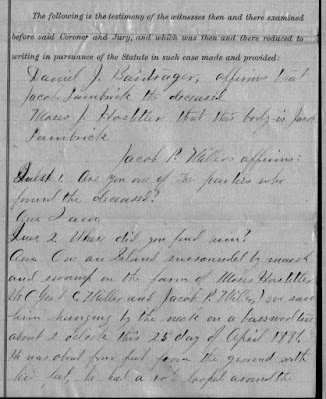 The following is the testimony of the witnesses then and there examined
before said Coroner and Jury, and which was then and there reduced to
writing in pursuance of the Statute in such case made and provided:
Daniel J. affirms that
Jacob Lambrick the deceased
Moses J. Hostetler that this body is Jacob
Lambrick
Jacob P. Miller affirms:
Quest 1. Are you one of the parties who
found the deceased?
Ans I am
Ques 2 Where did you find him?
Ans On an Island surrounded by marsh
and swamp on the farm of Moses Hostetler
We ( C Miller and Jacob P. Miller) we saw
him hanging by the neck on a basswood tree
about 2 oclock this 25 day of April 1891.
He was about four feet from the ground with
his feet, he had a looped around the